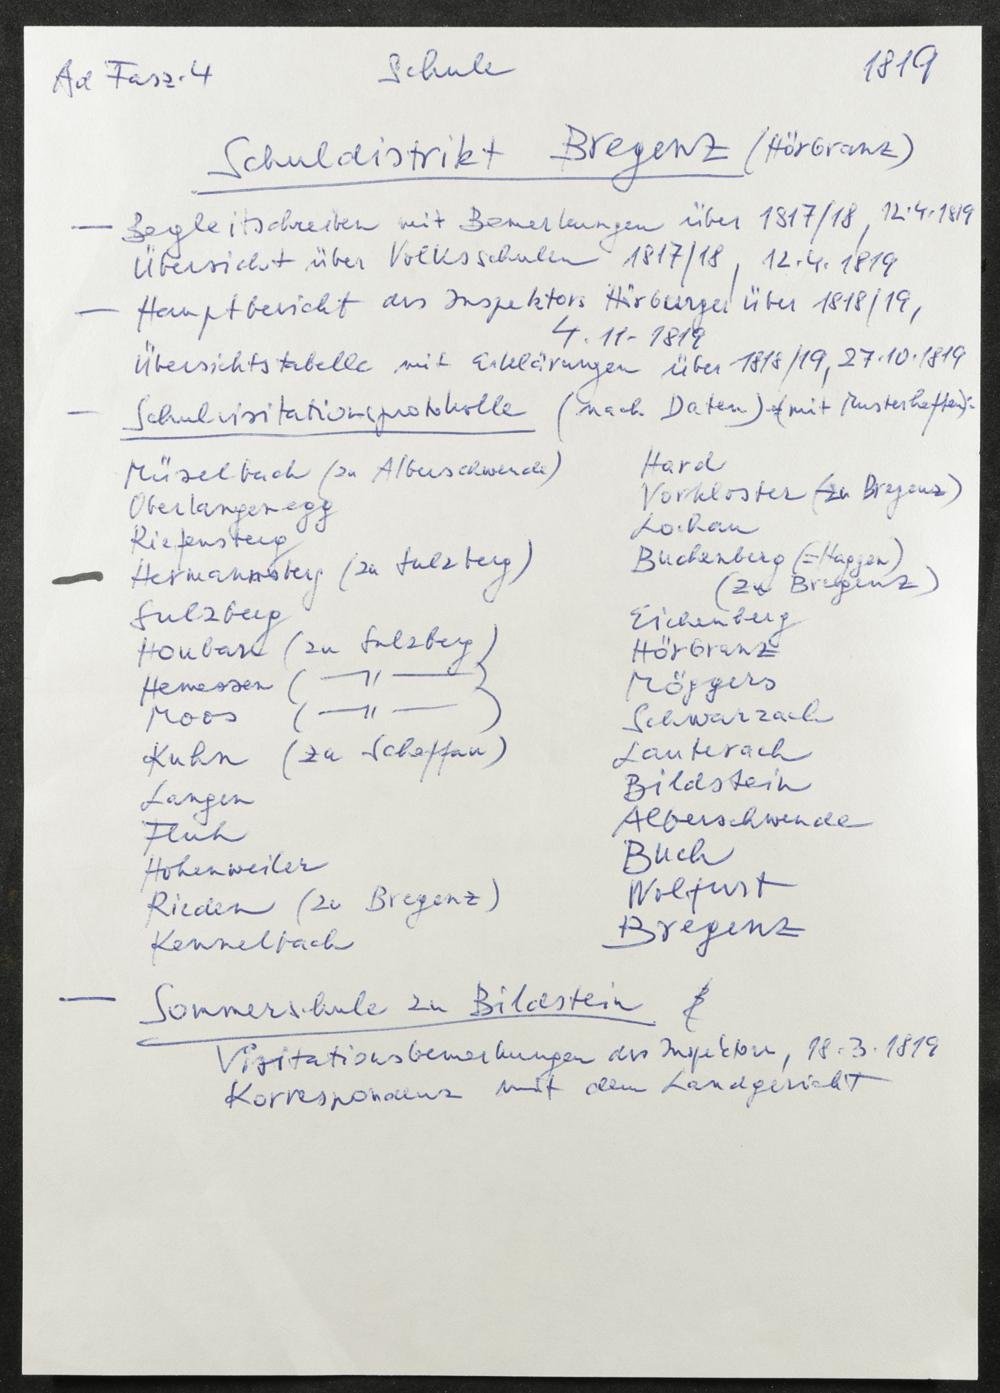 Ad Fasz. 4 Schule 1819
Schuldistrikt Bregenz (Hörbranz)
— Begleitschreiben mit Bemerkungen über 1817/18, 12.4.1819
Übersicht über Volksschulen 1817/18, 12.4.1819
— Hauptbericht des Inspektors Hörburger über 1818/19,
4.11.1819
Übersichtstabelle mit Erklärungen über 1818/19, 27.10.1819
— Schulvisitationsprotokolle (nach Daten) (mit Musterheften):
Müselbach (zu Alberschwende)
Oberlangenegg
Riefensberg
— Hermannsberg (zu Sulzberg)
Sulzberg
(zu Sulzberg)
( —"— )
Moos ( —"— )
Kuhn (zu Scheffau)
Langen
Fluh
Hohenweiler
Rieden (zu Bregenz)
Kennelbach
Hard
Vorkloster (zu Bregenz)
Lochau
Buchenberg (=Haggen)
(zu Bregenz)
Eichenberg
Hörbranz
Möggers
Schwarzach
Lauterach
Bildstein
Alberschwende
Buch
Wolfurt
Bregenz
— Sommerschule zu Bildstein
Visitationsbemerkungen des Inspektors, 18.3.1819
Korrespondenz mit dem Landgericht